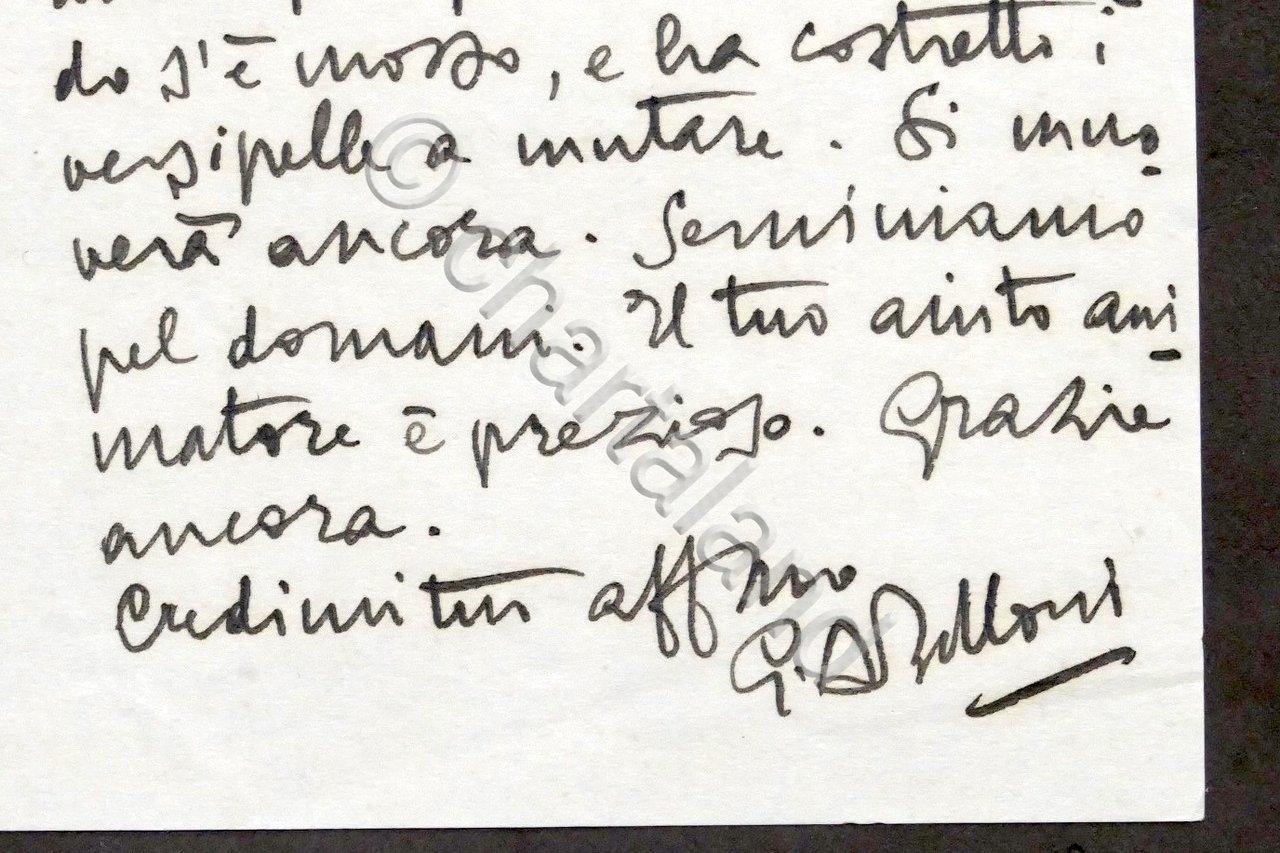 do s'è mosso, e ha costretti i
versipelle a mutare. Si muo-
verà ancora. Seminiamo
pel domani. Il tuo aiuto ani-
matore è prezioso. Grazie
ancora.
Credimi tuo aff mo
G. A. Belloni
© chartaland